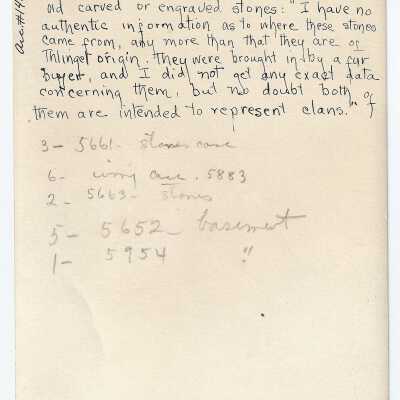 old carved or engraved stones: "I have no
authentic information as to where these stones
came from, any more than that they are of
Thlinget origin. They were brought in by a fur
buyer, and I did not get any exact data
concerning them, but no doubt both of
them are intended to represent clans."
3- 5661- stones case
6- ivory case. 5883
2- 5663- stones
5- 5652- basement
1- 5954 "
Acc.#14